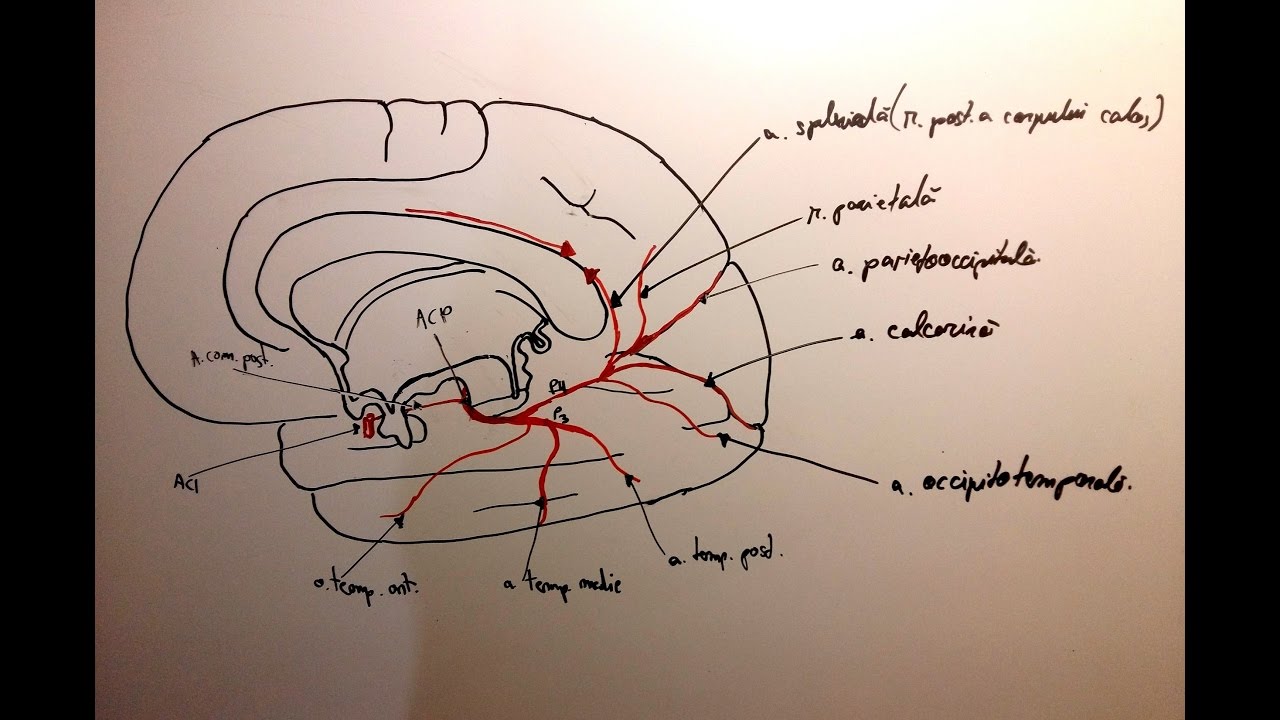 a. splenială (r. post. a corpului calos)
r. parietală
a. parietooccipitală
a. calcarină
ACP
A. com. post.
P4
P3
ACI
a. occipitotemporală.
a. temp. post.
a. temp. medie
a. temp. ant.